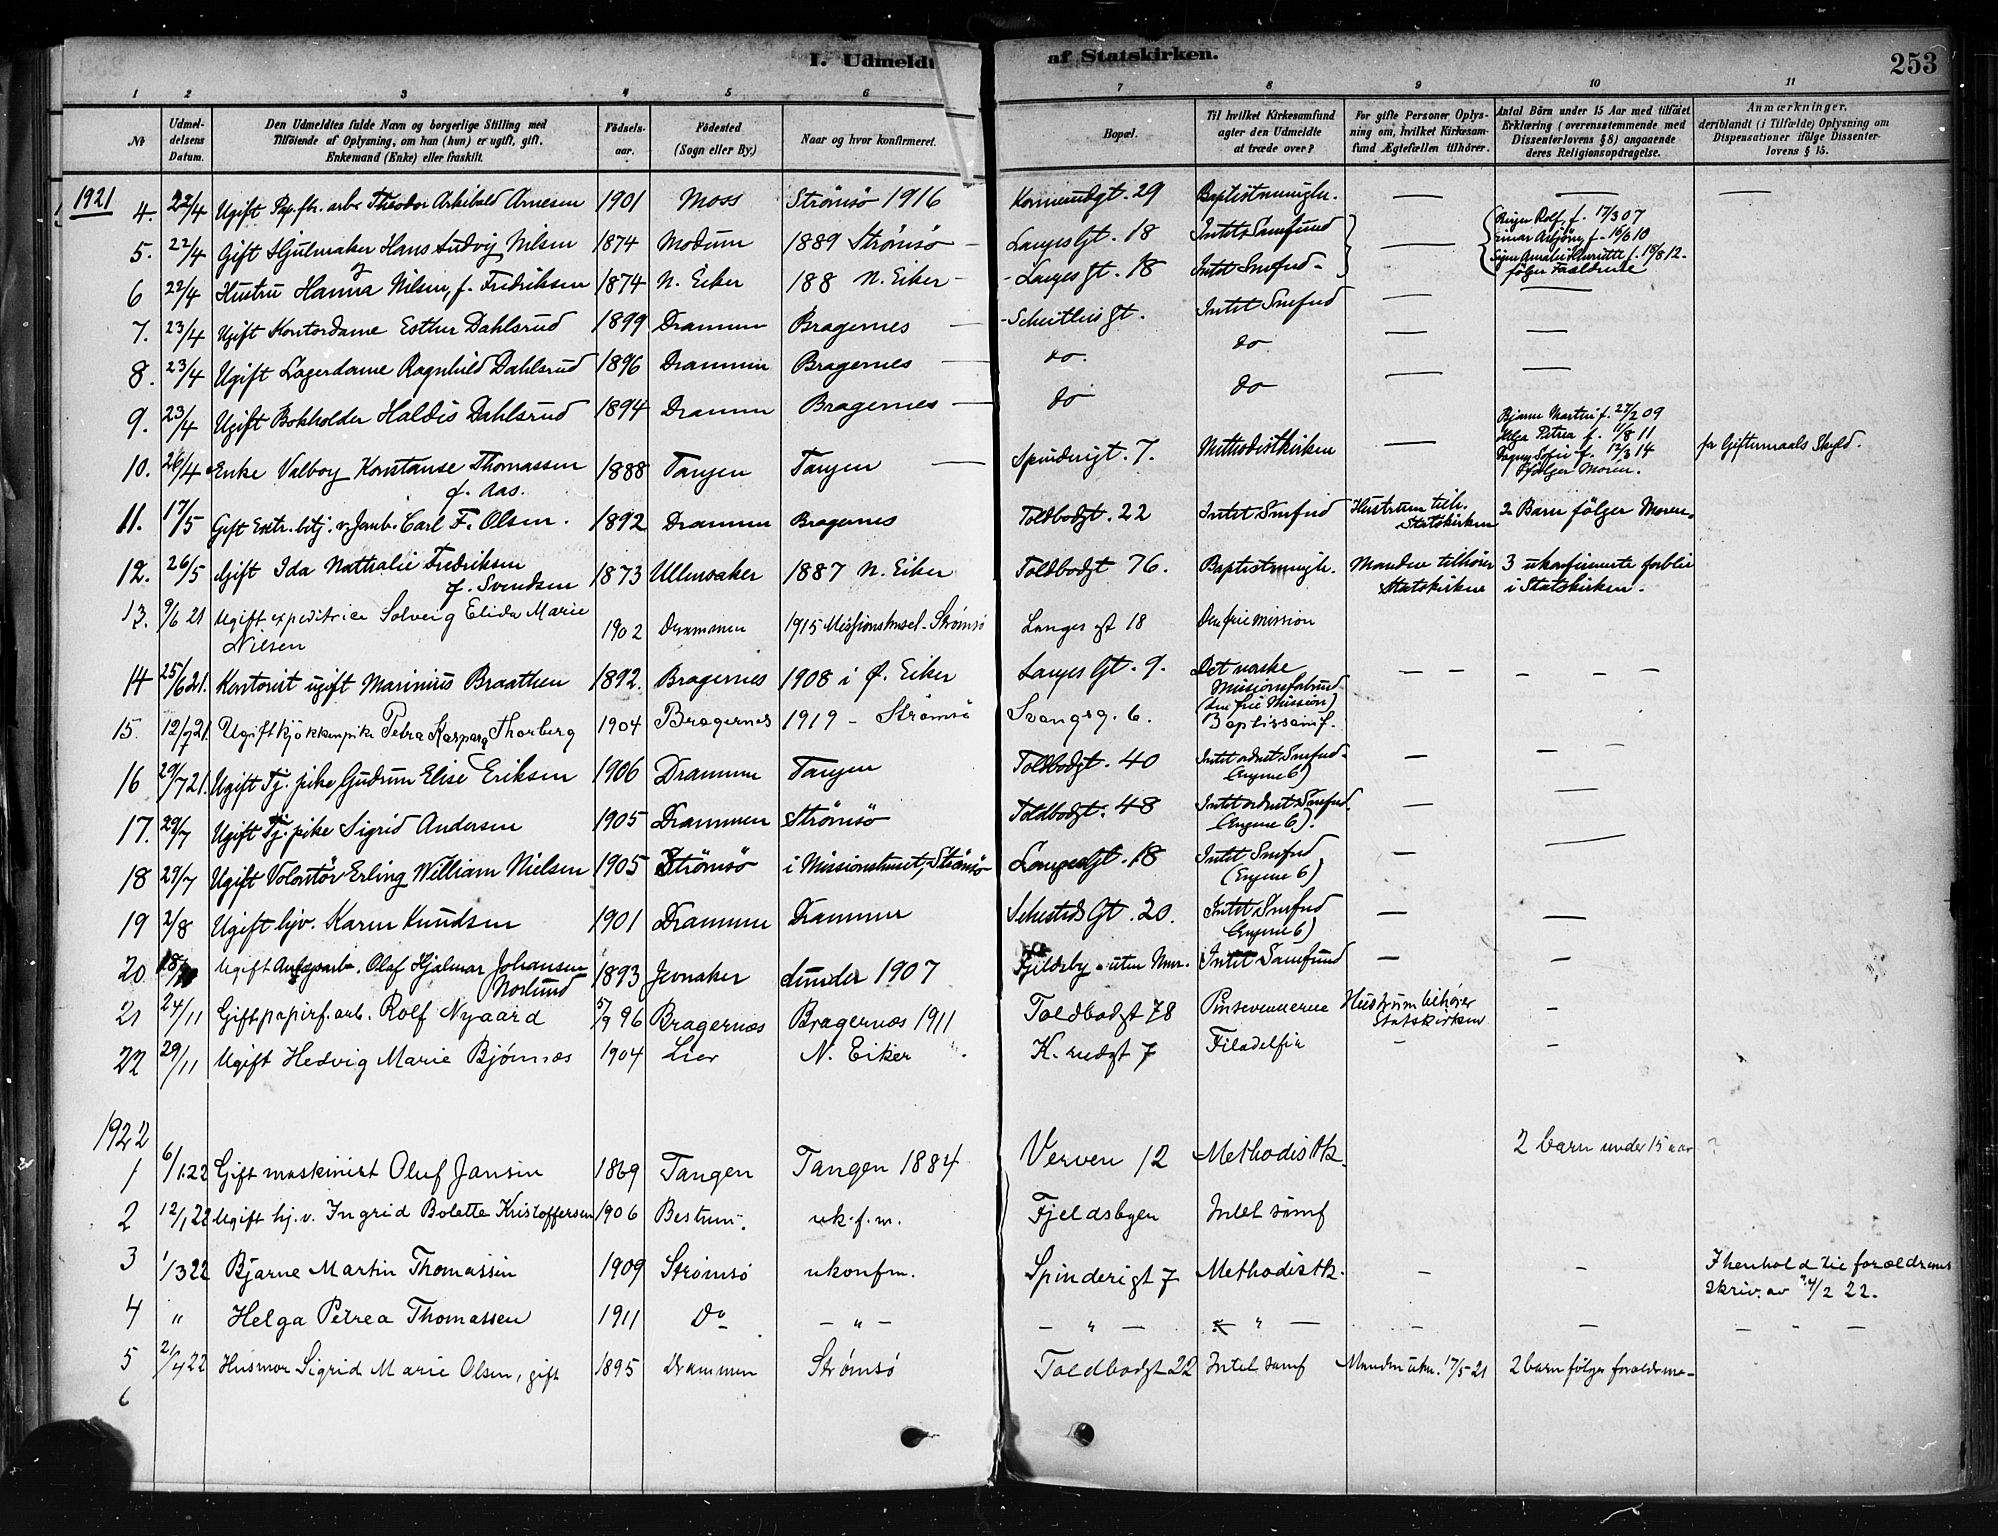 I. Udmeldt af Statskirken.
253
1 2 3 4 5 6 7 8 9 10 11
No
Udmeldelsens Datum.
Den Udmeldtes fulde Navn og borgerlige Stilling med
Tilföiende af Oplysning, om han (hun) er ugift, gift,
Enkemand (Enke) eller fraskilt.
Födselsaar.
Födested (Sogn eller By.)
Naar og hvor konfirmeret.
Bopæl.
Til hvilket Kirkesamfund
agter den Udmeldte
at træde over?
For gifte Personer Oplys-
ning om, hvilket Kirkesam-
fund Ægtefællen tilhörer.
Antal Börn under 15 Aar med tilföiet
Erklæring (overensstemmende med
Dissenterlovens § 8) angaaende
deres Religionsopdragelse.
Anmærkninger,
deriblandt (i Tilfælde) Oplysning om
Dispensationer ifölge Dissenter-
lovens § 15.
1921
4. 22/4 Ugift Pap.fbr. arb. Theodor Arkibald Arnesen 1901 Moss Strömsö 1916 Konnerudgt. 29 Baptistmenigh. — — —
5. 22/4 Gift Hjulmaker Hans Ludvig Nilsen 1874 Modum 1889 Strömsö — Langes Gt. 18 Intet Samfund — Rolf, f. 17/3 07
f. 16/6 10
f. 18/8 12-
6 22/4 Hustru Hanna Nilsen, f. Fredriksen 1874 N. Eiker 188 N. Eiker - - Langes gt. 18 Intet Smfnd - følger Forældrene
7. 23/4 Ugift Kontordame Esther Dahlsrud 1899 Drammen Bragernes — - Scheitlies gt. Intet Smfnd — —
8. 23/4 Ugift Lagerdame Ragnhild Dahlsrud 1896 Drammen Bragernes — do. do — —
9. 23/4 Ugift Bokholder Haldis Dahlsrud 1894 Drammen Bragernes — do do — —
10. 26/4 Enke Valborg Konstanse Thomassen
f. Aas. 1888 Tangen Tangen — Spinderigt. 7. Methodistkirken — Bjarne Martin f. 27/2 09
Helga Petrea f. 11/8 11
Dagny Sofie f. 12/3 14
følger Moren. for Giftermaals Skyld.
11. 17/5 Gift Extr. betj. v. Jernb. Carl F. Olsen. 1892 Drammen Bragernes Toldbodgt. 22 Intet Smfnd Hustrum tilh.
Statskirken 2 Barn følger Moren.
12. 26/5 Gift Ida Nathalie Fredriksen
f. Svendsen 1873 Ullensaker 1887 N. Eiker Toldbodgt 76. Baptistmenigh. Manden tilhører
Statskirken 3 ukonfirmerte forblir
i Statskirken.
13. 9/6 21 Ugift expeditrice Solveig Elida Marie
Nilsen 1902 Drammen 1915 Missionshuset - Strømsø Langes gt 18 Den frie mission
14 25/6 21. Kontorist ugift Marinius Braathen 1892. Bragernes 1908 i Ø. Eiker Langes Gt. 9. Det norske
Missionsforbund
(den frie Mission) — — — — —
15. 12/7 21. Ugift kjøkkenpike Petra Kaspara Thorberg 1904 Bragernes 1919 - Strømsø Svangsg. 6. Baptissamf.
16 29/7 21. Ugift Tj. pike Gudrun Elise Eriksen 1906 Drammen Tangen Toldbodgt. 40 Intet ordnet Smfnd.
(Eugene 6) — — —
17. 29/7 Ugift Tj. pike Sigrid Andersen 1905 Drammen Strömsö Toldbodgt. 48 Intet ordnet Smfnd.
(Eugene 6). — —
18 29/7 Ugift Volontör Erling William Nielsen 1905 Strömsö i Missionshuset, Strömsö Langes Gt. 18 Intet Smfnd
(Eugene 6) — —
19 2/8 Ugift hjv. Karen Knudsen 1901 Drammen Drammen Schesteds Gt. 20. Intet Smfnd
(Eugene 6) — —
20 18/ Ugift Olaf Hjalmar Johansen
Norlund 1893 Jevnaker Lunder 1907 Fjeldsby - uten Nmr. Intet Samfund — —
21 24/11 Gift papirf. arb. Rolf Nygaard 5/9 96 Bragernæs Bragernæs 1911 Toldbodgt 78 Pinsevennerne Hustrum tilhører
Statskirken -
22 29/11 Ugift Hedvig Marie Bjørnnæs 1904 Lier N. Eiker K. rudgt 7 Filadelfia - -
1922
1 6/1 22 Gift maskinist Oluf Jansin 1869 Tangen Tangen 1884 Verven 12 Methodistk. 2 barn under 15 aar ?
2 12/1 22 Ugift hj. v. Ingrid Bolette Kristoffersen 1906 Bestum. uk.f.m. Fjeldsbyen Intet samf
3 1/3 22 Bjarne Martin Thomassen 1909 Strømsø ukonfm. Spinderigt 7 Methodistk. - - I henhold til forældrenes
skriv. av /2 22.
4 " Helga Petrea Thomassen 1911 Do — " — — " — " — — — — " —
5 21/4 22 Husmor Sigrid Marie Olsen, gift 1895 Drammen Strømsø Toldbodgt 22 Intet samf Manden utm. 17/5 21 2 barn følger forældrene -
6